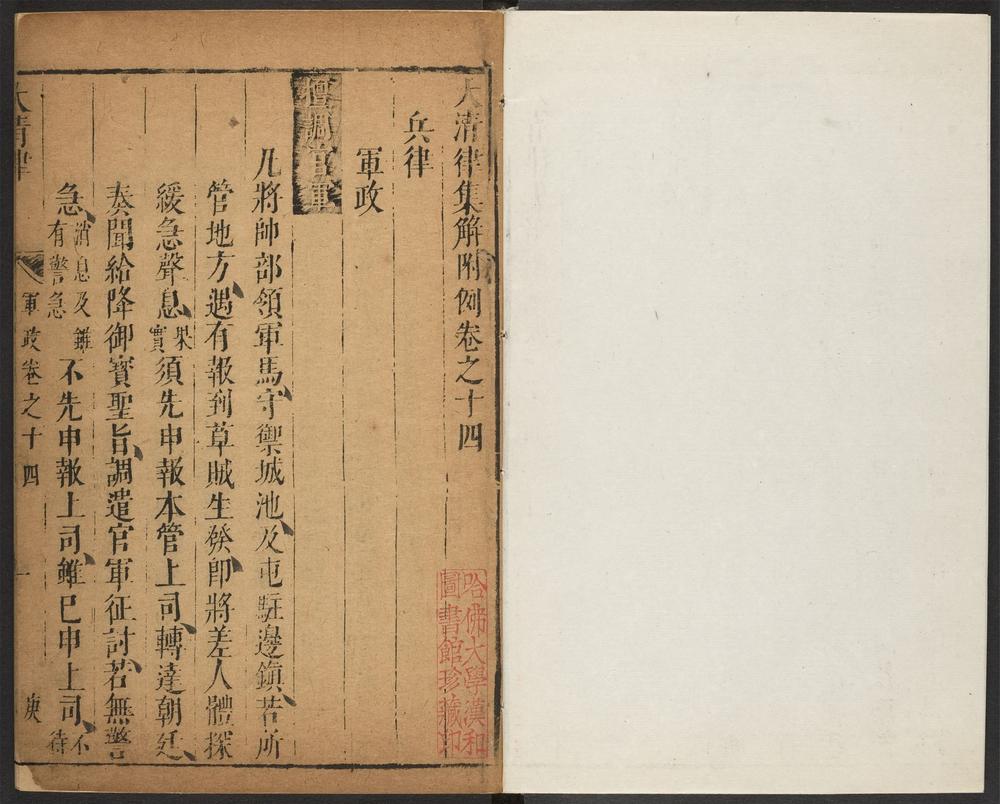 大清律集解附例卷之十四
兵律
軍政
擅調官軍
凡將帥部領軍馬守禦城池及屯駐邊鎮若所
管地方遇有報到草賊生發即將差人體探
緩急聲息果實須先申報本管上司轉達朝廷
奏聞給降御寶聖旨調遣官軍征討若無警
急消息及雖有警急不先申報上司雖已申上司不待
大清律
軍政卷之十四
一
庚
哈佛大學漢和
圖書館珍藏印